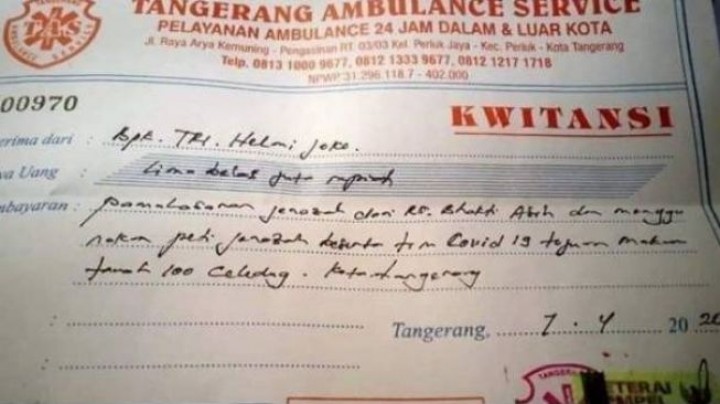 TANGERANG AMBULANCE SERVICE
PELAYANAN AMBULANCE 24 JAM DALAM & LUAR KOTA
Jl. Raya Arya Kemuning - Pengasinan RT 03/03 Kel. Periuk Jaya - Kec. Periuk - Kota Tangerang
Telp. 0813 1000 9677, 0812 1333 9677, 0812 1217 1718
NPWP:31.296.118.7 - 402.000
00970
KWITANSI
erima dari : Bpk. Tri. Helmi Joko.
ya Uang : Lima belas juta rupiah
mbayaran : pemulasaran jenazah dari RS. Bhakti Asih dan menggu
nakan peti jenazah beserta tim Covid 19 tujuan makam
tanah 100 Ciledug. Kota tangerang
Tangerang, 7 . 4 20 20
TANGERANG
METERAI
TEMPEL